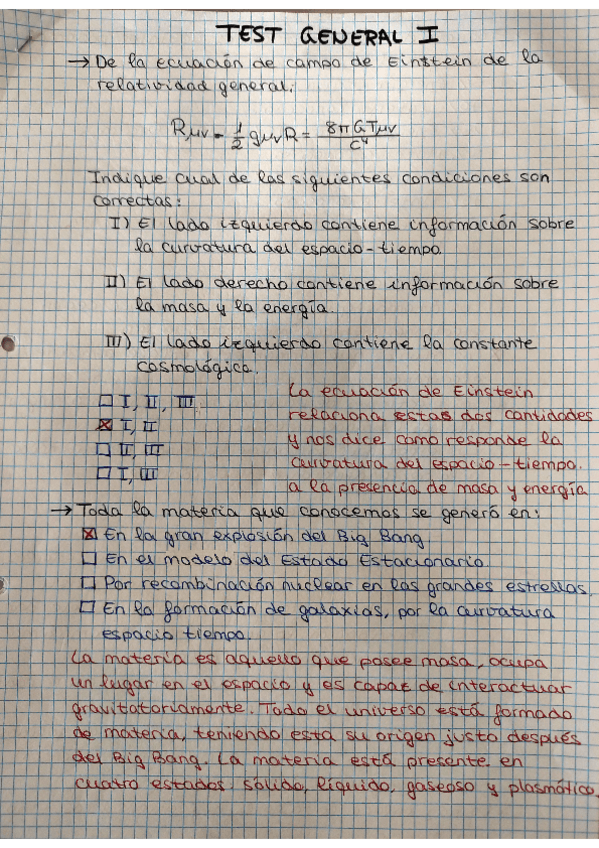 TEST GENERAL I
→ De la ecuación de campo de Einstein de la
relatividad general.
Rμν - 1/2 gμν R = 8πGTμν / c⁴
Indique cual de las siguientes condiciones son
correctas:
I) El lado izquierdo contiene información sobre
la curvatura del espacio-tiempo.
II) El lado derecho contiene información sobre
la masa y la energía.
III) El lado izquierdo contiene la constante
cosmológica.
☐ I, II, III
☒ I, II
☐ II, III
☐ I, III
La ecuación de Einstein
relaciona estas dos cantidades
y nos dice como responde la
curvatura del espacio-tiempo.
a la presencia de masa y energía
→ Toda la materia que conocemos se generó en:
☒ En la gran explosión del Big Bang
☐ En el modelo del Estado Estacionario.
☐ Por recombinación nuclear en las grandes estrellas.
☐ En la formación de galaxias, por la curvatura
espacio tiempo.
La materia es aquello que posee masa, ocupa
un lugar en el espacio y es capaz de interactuar
gravitatoriamente. Todo el universo está formado
de materia, teniendo esta su origen justo después
del Big Bang. La materia está presente en
cuatro estados: sólido, líquido, gaseoso y plasmático.